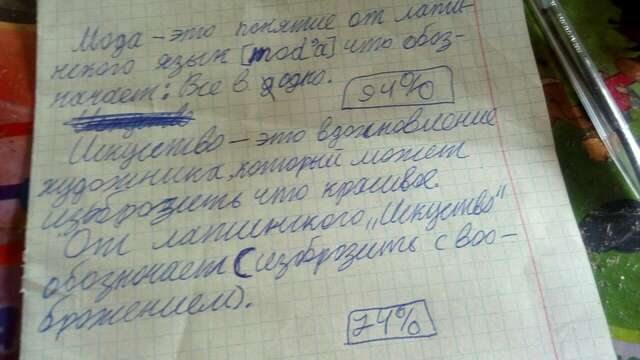 Мода – это понятие от лати-
нского язык [mod'a] что обоз-
начает: Все в одно.
94%
Искусство – это вдохновление
художника, который может
изобразить что красивое.
От латинского „Искуство"
обозначает (изобразить с воо-
бражением).
74%